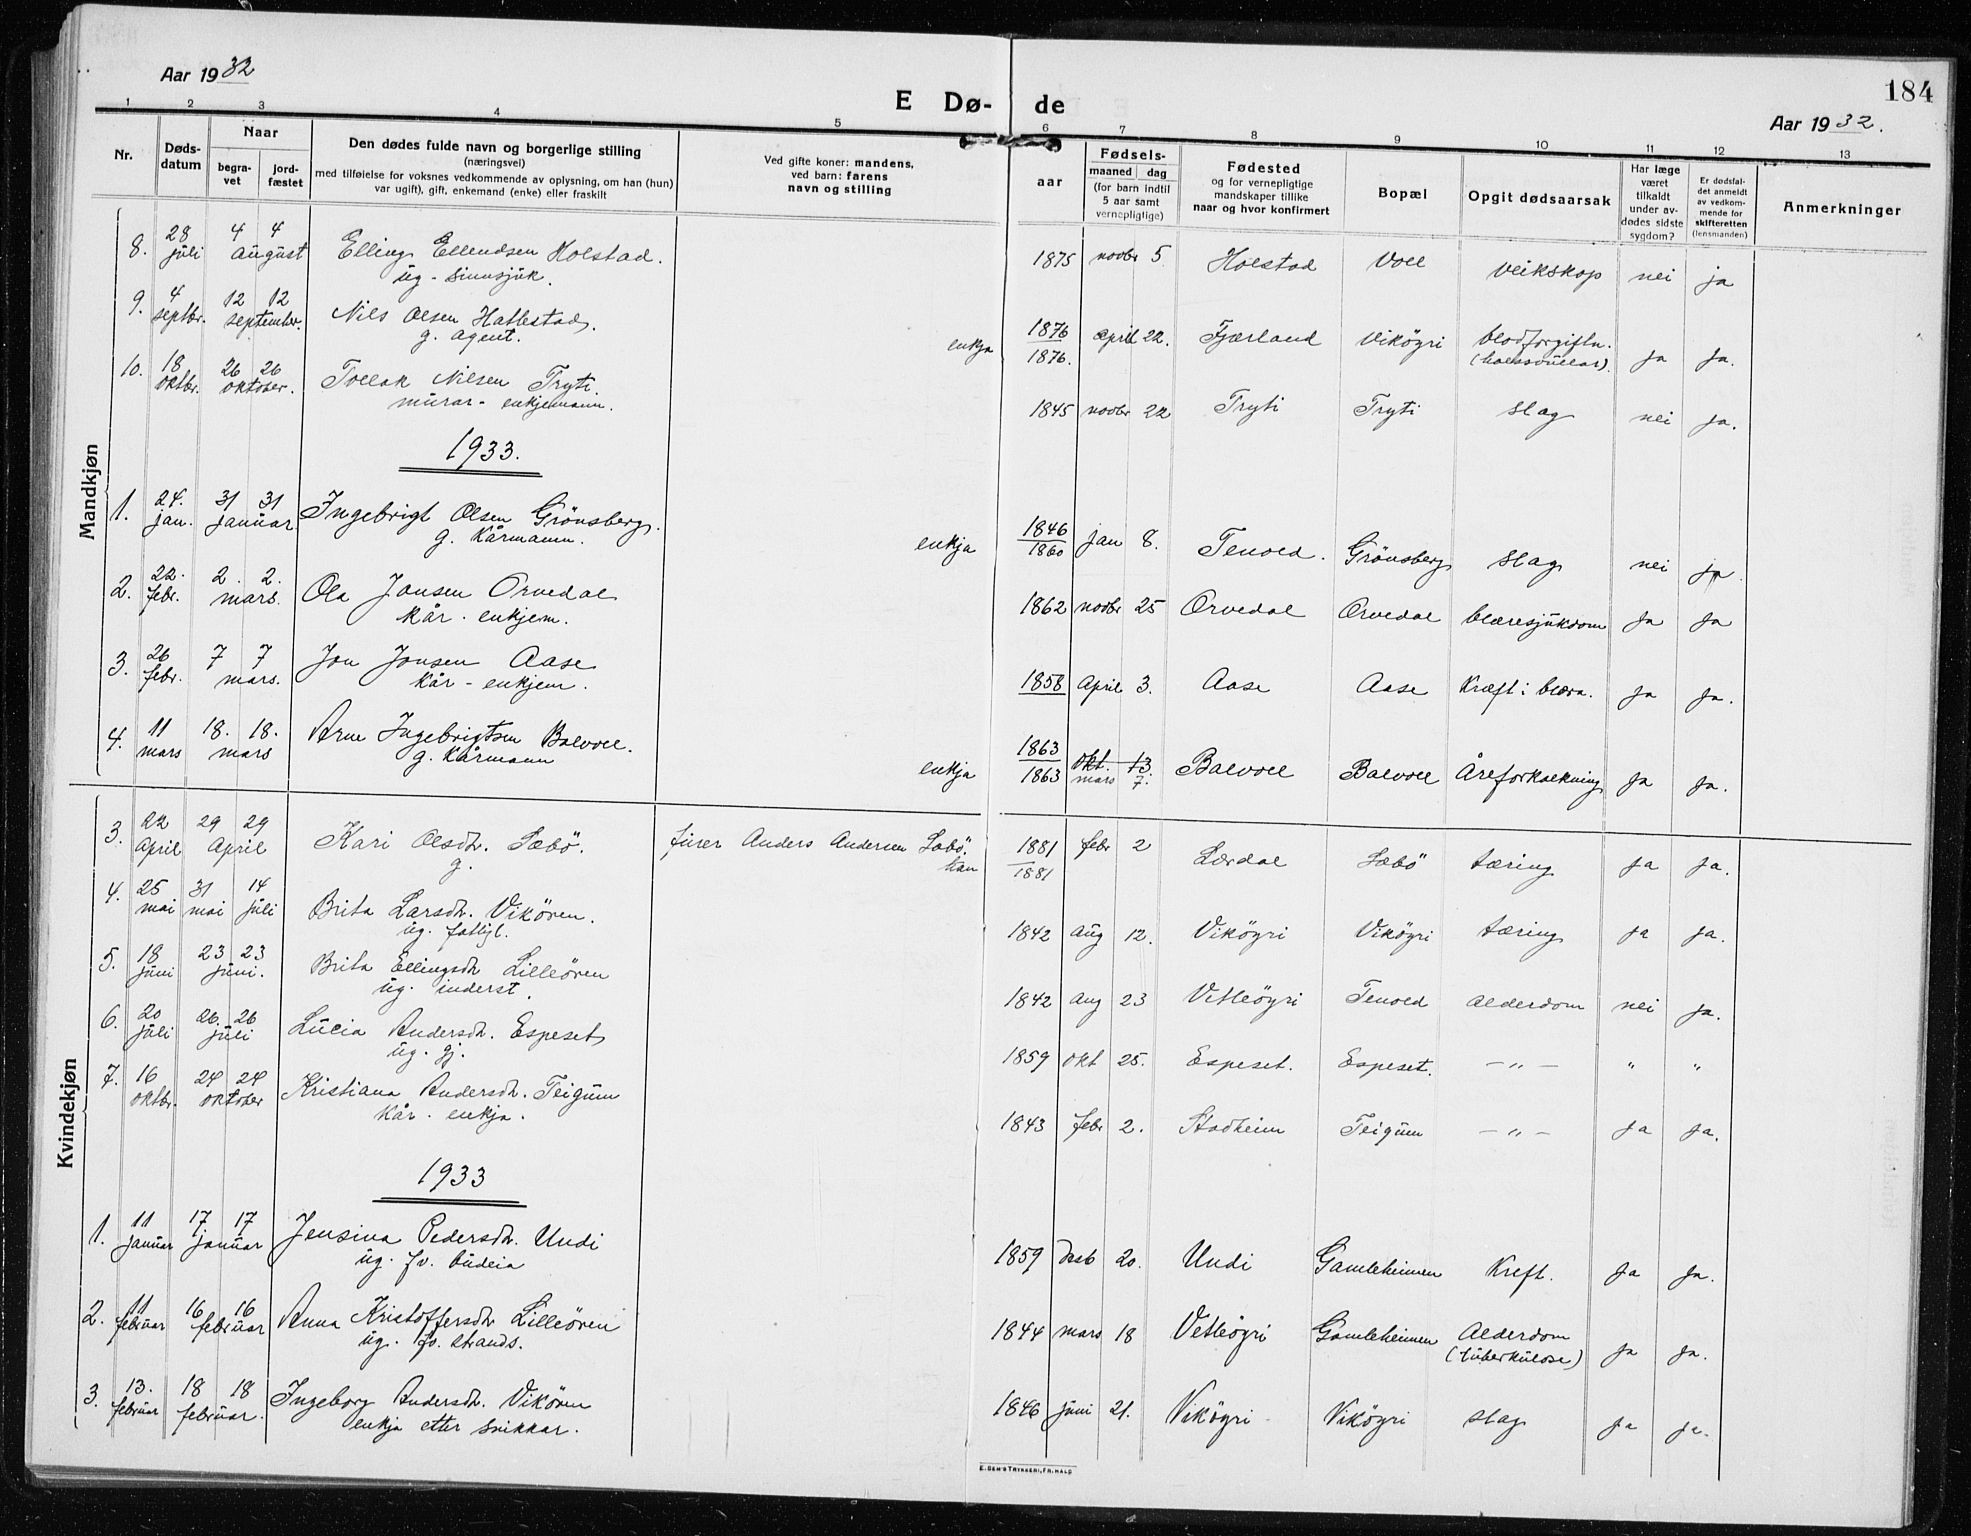 184
Aar 1932
E Dø- de
Aar 1932.
1 2 3 4 5 6 7 8 9 10 11 12 13
Nr.
Døds-
datum
Naar
begra-
vet
jord-
fæstet
Den dødes fulde navn og borgerlige stilling
(næringsvei)
med tilføielse for voksnes vedkommende av oplysning, om han (hun)
var ugift), gift, enkemand (enke) eller fraskilt
Ved gifte koner: mandens,
ved barn: farens
navn og stilling
aar
Fødsels-
maaned dag
(for barn indtil
5 aar samt
vernepligtige)
Fødested
og for vernepligtige
mandskaper tillike
naar og hvor konfirmert
Bopæl
Opgit dødsaarsak
Har læge
været
tilkaldt
under av-
dødes sidste
sygdom?
Er dødsfal-
det anmeldt
av vedkom-
mende for
skifteretten
(lensmanden)
Anmerkninger
Mandkjøn
8. 28 juli 4 4 august Elling Ellendsen Holstad. 1875 novbr 5. Holstad Voll veikskap nei ja
ug - sinnsjuk.
9. 4 septbr. 12 12 september. Nils Olsen Hatlestad, enkja 1876 1876. april 22. Fjærland Vikøyri blodforgiftn. ja ja.
g. agent.
10. 18 oktbr. 26 26 oktober. Tollak Nilsen Tryti. 1845 novbr 22 Tryti Tryti slag nei ja.
murar - enkjemann.
1933.
1. 24. jan. 31 31 januar Ingebrigt Olsen Grönsberg. enkja 1846 1860 jan 8. Tenold. Grönsberg slag nei ja.
g. Kårmann.
2. 22. febr. 2. 2. mars. Ola Jonsen Orvedal 1862 novbr 25 Orvedal Orvedal blæresjukdom ja ja
kår - enkjem.
3. 26 febr. 7 7 mars. Jon Jonsen Aase 1858 April 3. Aase Aase Kræft i blæra. ja ja.
kår - enkjem.
4. 11 mars 18. 18. mars Arne Ingebrigtsen Balvoll. enkja 1863 1863 okt. 13. mars 7. Balvoll Balvoll Åreforkalkning ja ja.
g. Kårmann
Kvindekjøn
3. 22 April 29 29 April Kari Olsdtr. Sæbö. furer Anders Andersen Sæbö. han 1881 1881 febr 2 Lærdal Sæbö tæring ja ja.
g.
4. 25 mai 31 mai 14 juli Brita Larsdtr. Vikören. 1842 aug 12. Vikøyri Vikøyri tæring ja ja.
ug. fattigl.
5. 18 juni 23 23 juni. Brita Ellingsdtr Lilleören 1842 aug 23 Vetleøyri Tenold alderdom nei ja.
ug. inderst.
6. 20 juli 26. 26 juli Lucia Andersdtr. Espeset 1859 okt 25. Espeset. Espeset. - " - " "
ug. gj.
7. 16 oktbr. 24 24 oktober Kristiana Andersdtr. Teigum 1843 febr 2. Stadheim Teigum - " - ja ja.
Kår - enkja.
1933
1. 11 januar 17 17 januar Jensina Pedersdtr. Undi 1859 desb 20. Undi Gamleheimen Kreft. ja ja.
ug. fv. budeia
2. 11 februar 16 16 februar Anna Kristoffersdtr Lilleören 1844 mars 18 Vetleøyri Gamleheimen Alderdom (tuberkulose) ja ja.
ug. fv. strands.
3. 13. februar 18 18 februar. Ingeborg Andersdtr. Vikören 1846 juni 21. Vikøyri Vikøyri slag ja ja.
enkja etter snikkar.
E. SEM'S TRYKKERI, FR. HALD